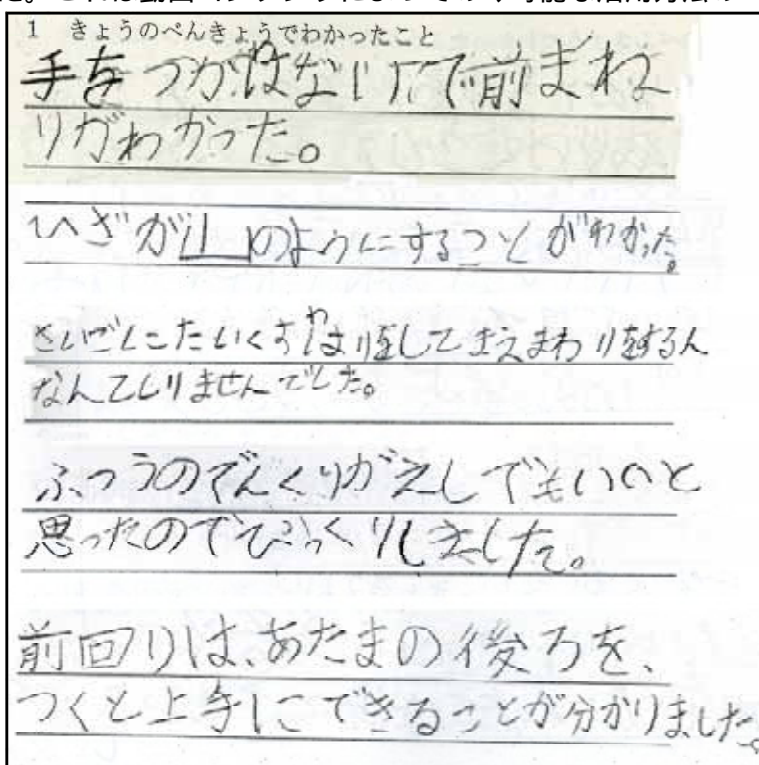 1 きょうのべんきょうでわかったこと
手をつかはないので前まわ
りがわかった。
ひざが山のようにすることがわかった。
さいごにたいくすわりをしてまえまわりをするん
なんてしりませんでした。
ふつうのでんぐりがえしでもいいと
思ったのでびっくりしました。
前回りは、あたまの後ろを、
つくと上手にできることが分かりました。